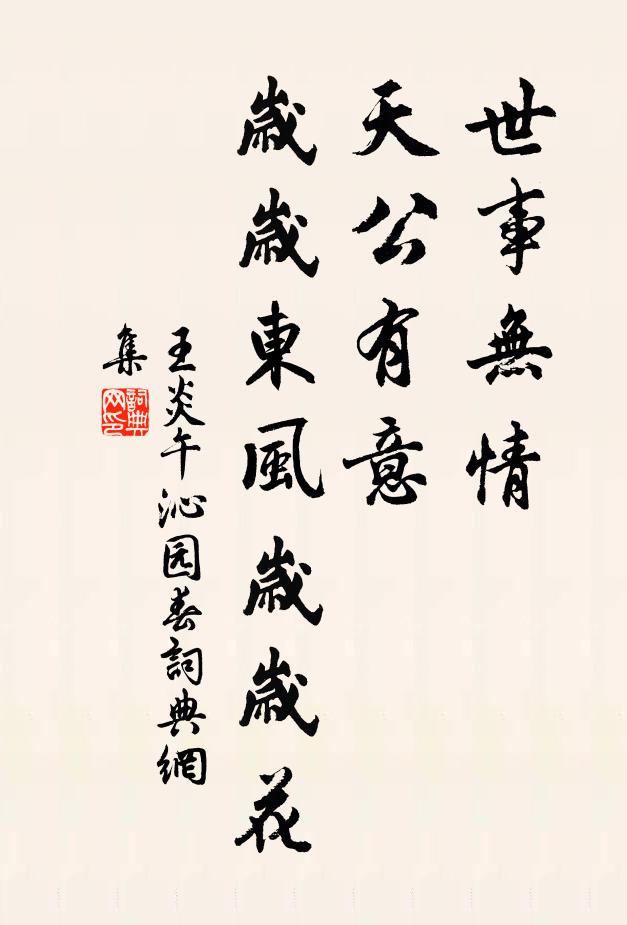 世事無情
天公有意
歲歲東風歲歲花
王炎午沁园春詞典網
集
詞典
网印